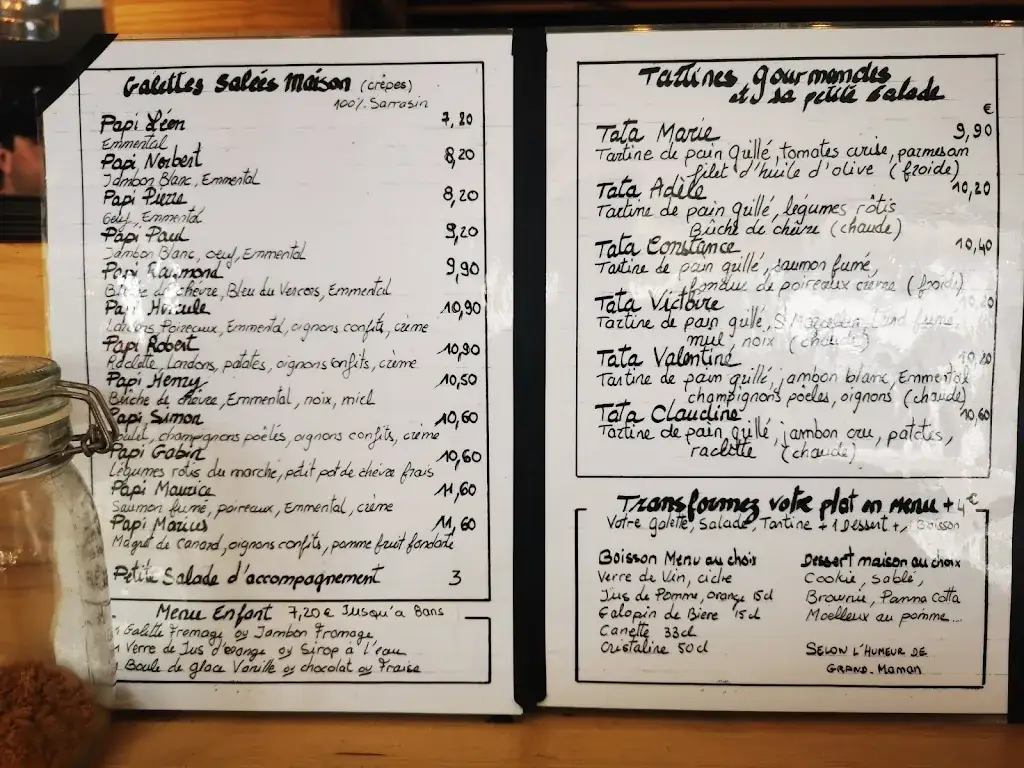 Galettes Salées Maison (crêpes)
100% Sarrasin
Papi Léon 7,20
Emmental
Papi Norbert 8,20
Jambon Blanc, Emmental
Papi Pierre 8,20
Oeuf, Emmental
Papi Paul 9,20
Jambon Blanc, oeuf, Emmental
Papi Raymond 9,90
Bûche de chèvre, Bleu du Vercors, Emmental
Papi Hercule 10,90
Lardons, Poireaux, Emmental, oignons confits, crème
Papi Robert 10,90
Raclette, Lardons, patates, oignons confits, crème
Papi Henry 10,50
Bûche de chèvre, Emmental, noix, miel
Papi Simon 10,60
Poulet, champignons poêlés, oignons confits, crème
Papi Gabin 10,60
Légumes rotis du marché, petit pot de chèvre frais
Papi Maurice 11,60
Saumon fumé, poireaux, Emmental, crème
Papi Marius 11,60
Magret de Canard, oignons confits, pomme fruit fondante
Petite Salade d'accompagnement 3
Menu Enfant 7,20€ Jusqu'a 8ans
1 Galette Fromage ou Jambon Fromage
1 Verre de Jus d'orange ou Sirop a l'eau
1 Boule de glace Vanille ou chocolat ou Fraise
Tartines gourmandes
et sa petite salade
€
Tata Marie 9,90
Tartine de pain grillé, tomates cerise, parmesan
filet d'huile d'olive (froide)
Tata Adèle 10,20
Tartine de pain grillé, légumes rôtis
Bûche de chèvre (chaude)
Tata Constance 10,40
Tartine de pain grillé, saumon fumé,
fondue de poireaux crème (froide)
Tata Victoire
Tartine de pain grillé, St Marcellin, lard fumé,
miel, noix (chaude)
Tata Valentine
Tartine de pain grillé, jambon blanc, Emmental
champignons poêlés, oignons (chaude)
Tata Claudine 10,60
Tartine de pain grillé, jambon cru, patates,
raclette (chaude)
Transformez votre plat en menu + 4€
Votre galette, Salade, Tartine + 1 Dessert + 1 Boisson
Boisson Menu au choix
Verre de Vin, cidre
Jus de Pomme, orange 15cl
Galopin de Bière 15cl
Canette 33cl
Cristaline 50cl
Dessert maison au choix
Cookie, sablé,
Brownie, Panna Cotta
Moelleux au pomme...
Selon l'humeur de
Grand-Maman